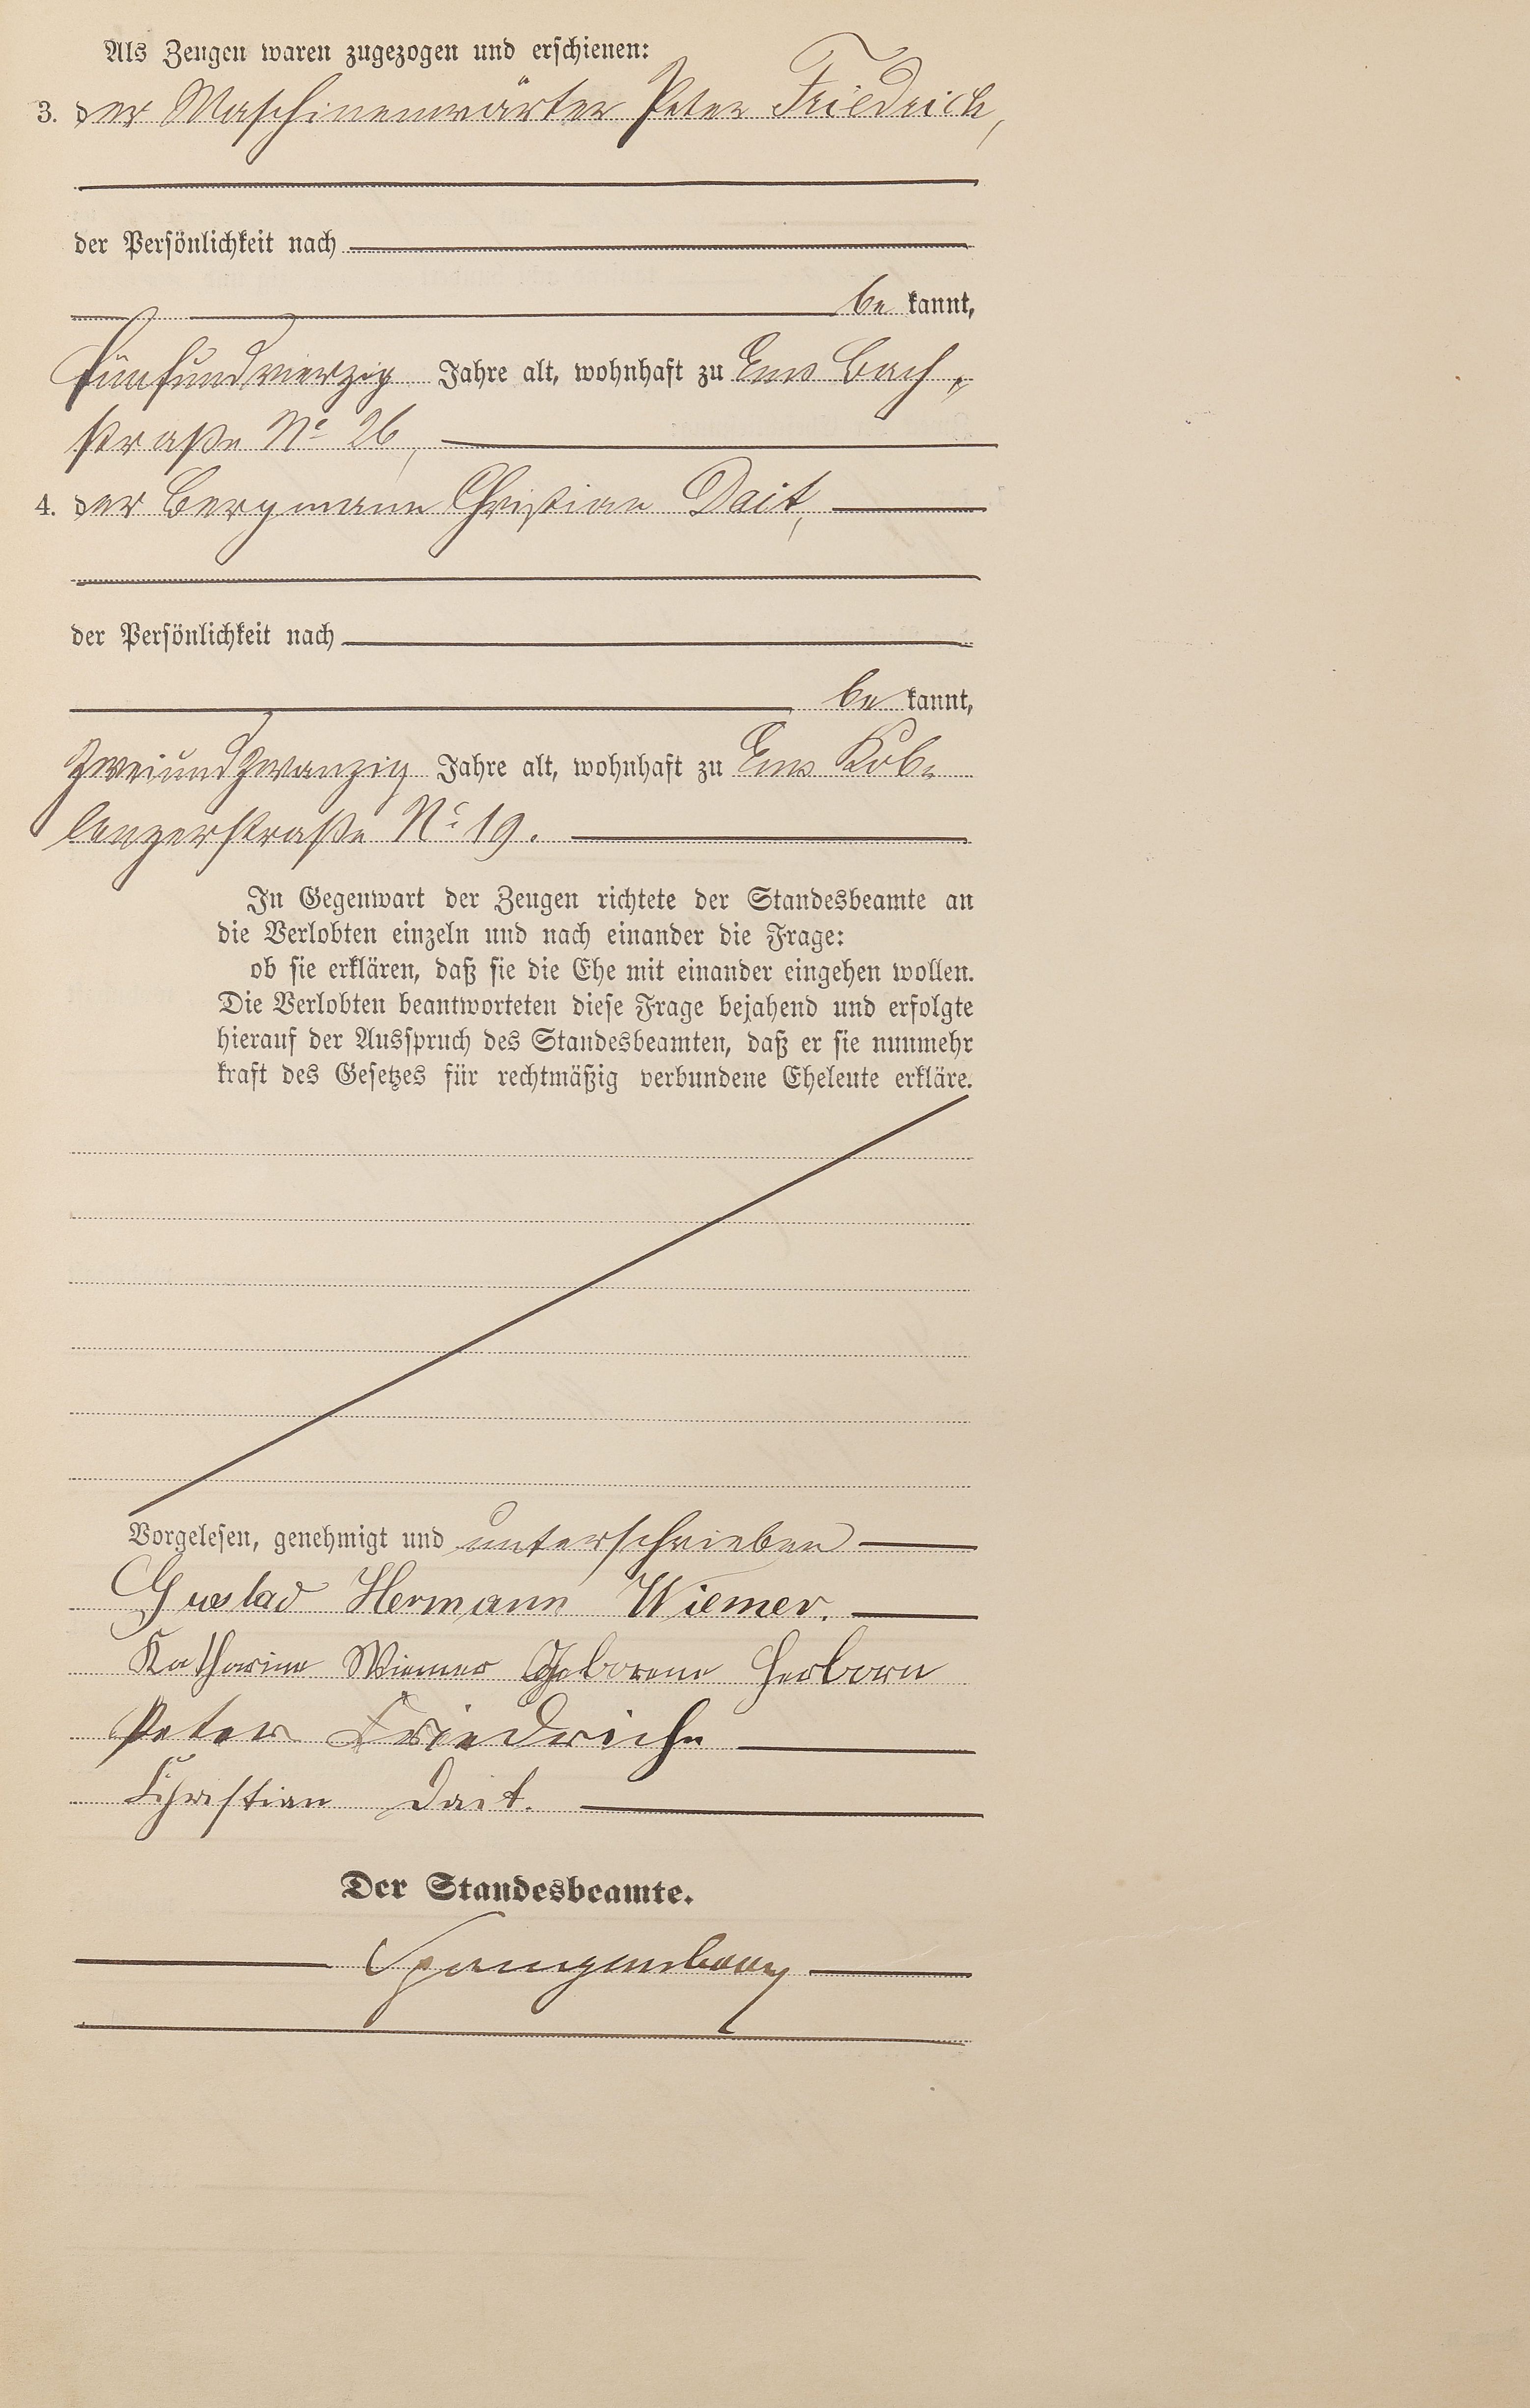 Als Zeugen waren zugezogen und erschienen:
3. der Maschinenwärter Peter Friedrich,
der Persönlichkeit nach
be kannt,
fünfundvierzig Jahre alt, wohnhaft zu Ems Bach-
straße No 26,
4. der Bergmann Christian Dait,
der Persönlichkeit nach
be kannt,
zweiundzwanzig Jahre alt, wohnhaft zu Ems Kob-
lenzerstraße No 19.
In Gegenwart der Zeugen richtete der Standesbeamte an
die Verlobten einzeln und nach einander die Frage:
ob sie erklären, daß sie die Ehe mit einander eingehen wollen.
Die Verlobten beantworteten diese Frage bejahend und erfolgte
hierauf der Ausspruch des Standesbeamten, daß er sie nunmehr
kraft des Gesetzes für rechtmäßig verbundene Eheleute erkläre.
Vorgelesen, genehmigt und unterschrieben
Gustav Hermann Wiemer.
Katharina Wiemer Geborene Herborn
Peter Friedrich
Christian Dait.
Der Standesbeamte.
Spangenberg